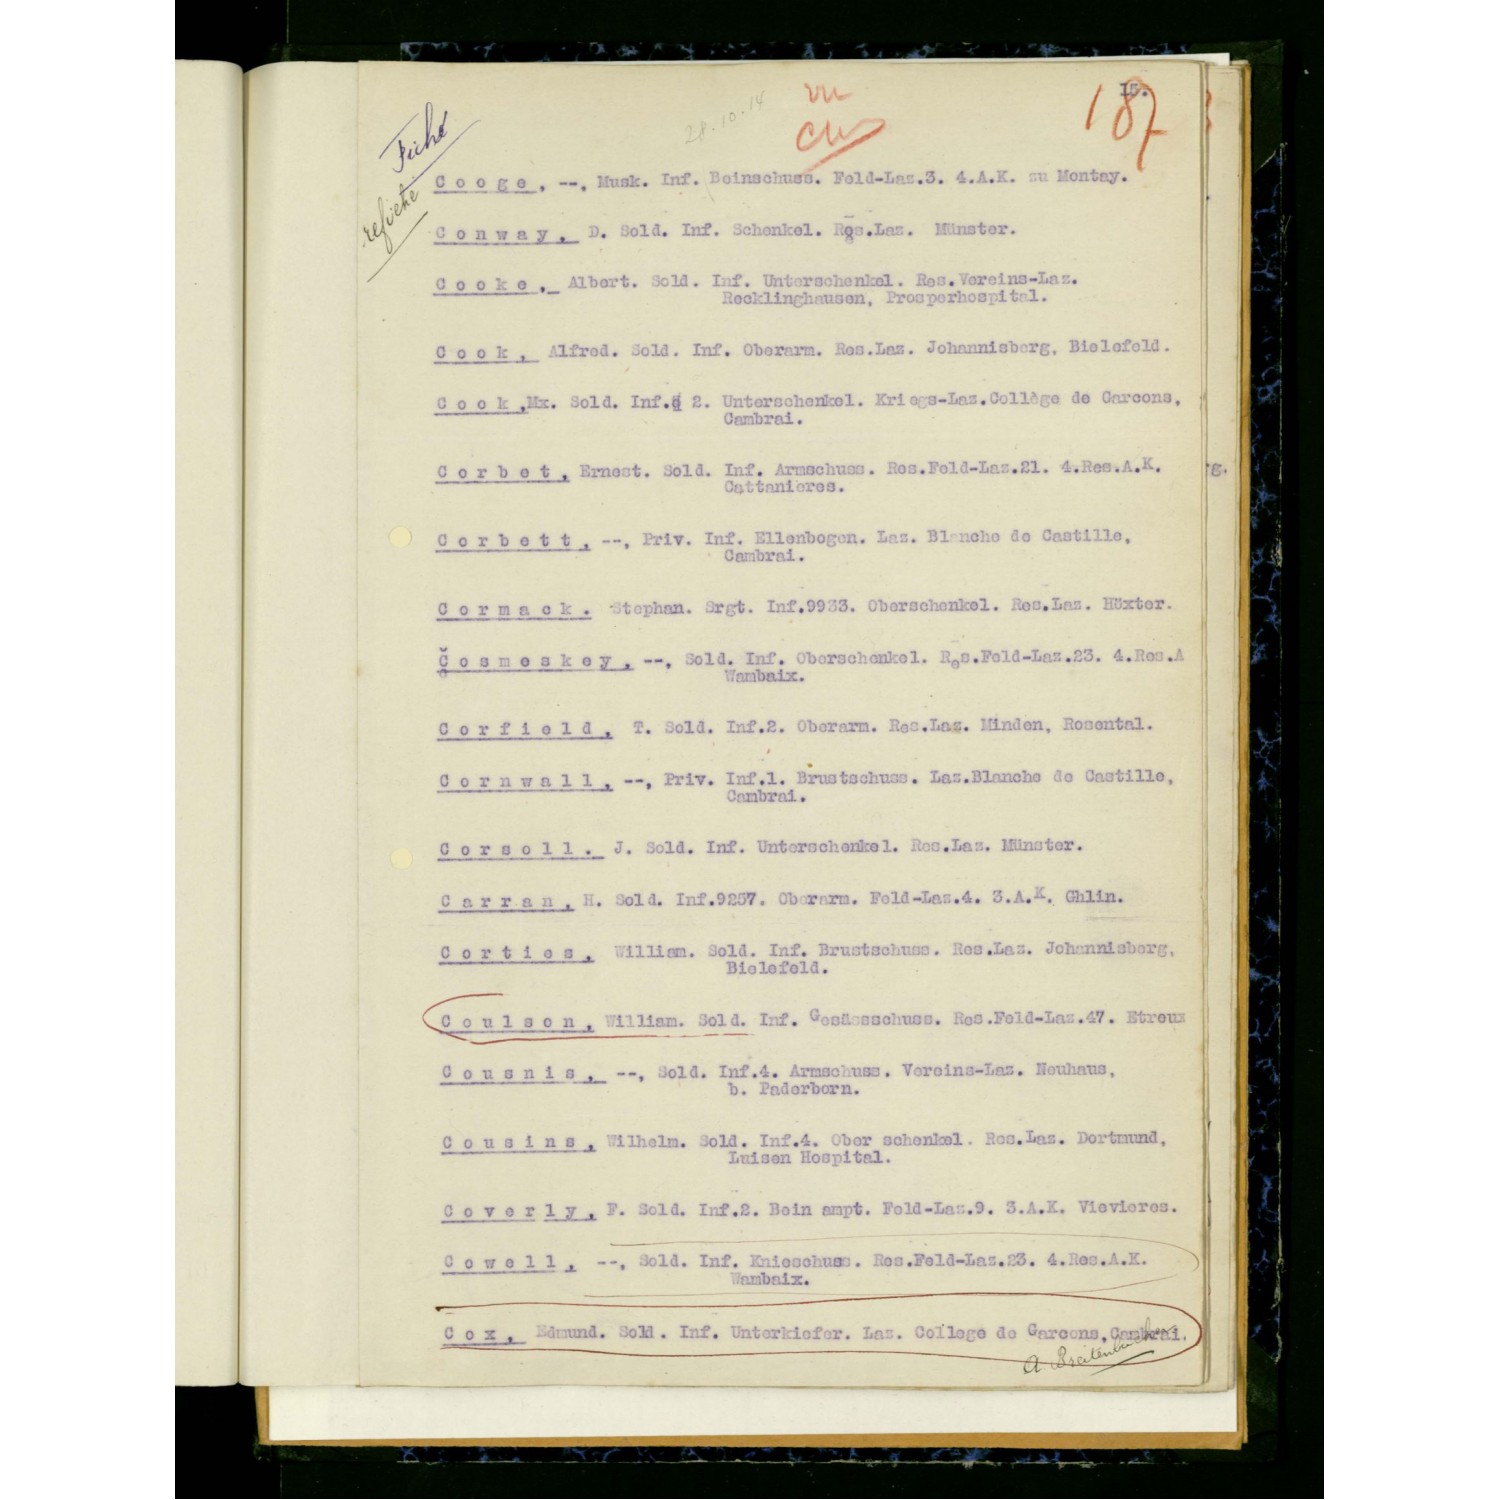 15.
187
vu
28.10.14
Fiche
refiche
Cooge, --, Musk. Inf. Beinschuss. Feld-Laz.3. 4.A.K. zu Montay.
Conway, D. Sold. Inf. Schenkel. Res.Laz. Münster.
Cooke, Albert. Sold. Inf. Unterschenkel. Res.Vereins-Laz.
Recklinghausen, Prosperhospital.
Cook, Alfred. Sold. Inf. Oberarm. Res.Laz. Johannisberg, Bielefeld.
Cook, Mx. Sold. Inf. 2. Unterschenkel. Kriegs-Laz.Collège de Garcons,
Cambrai.
Corbet, Ernest. Sold. Inf. Armschuss. Res.Feld-Laz.21. 4.Res.A.K.
Cattanieres.
rg.
Corbett, --, Priv. Inf. Ellenbogen. Laz. Blanche de Castille,
Cambrai.
Cormack. Stephan. Srgt. Inf.9933. Oberschenkel. Res.Laz. Höxter.
Cosmeskey, --, Sold. Inf. Oberschenkel. Res.Feld-Laz.23. 4.Res.A
Wambaix.
Corfield, T. Sold. Inf.2. Oberarm. Res.Laz. Minden, Rosental.
Cornwall, --, Priv. Inf.1. Brustschuss. Laz.Blanche de Castille,
Cambrai.
Corsoll. J. Sold. Inf. Unterschenkel. Res.Laz. Münster.
Carran, H. Sold. Inf.9257. Oberarm. Feld-Laz.4. 3.A.K. Ghlin.
Corties, William. Sold. Inf. Brustschuss. Res.Laz. Johannisberg,
Bielefeld.
Coulson, William. Sold. Inf. Gesässschuss. Res.Feld-Laz.47. Etreux
Cousnis, --, Sold. Inf.4. Armschuss. Vereins-Laz. Neuhaus,
b. Paderborn.
Cousins, Wilhelm. Sold. Inf.4. Ober schenkel. Res.Laz. Dortmund,
Luisen Hospital.
Coverly, F. Sold. Inf.2. Bein ampt. Feld-Laz.9. 3.A.K. Vievieres.
Cowell, --, Sold. Inf. Knieschuss. Res.Feld-Laz.23. 4.Res.A.K.
Wambaix.
Cox, Edmund. Sold. Inf. Unterkiefer. Laz. College de Garcons, Cambrai.